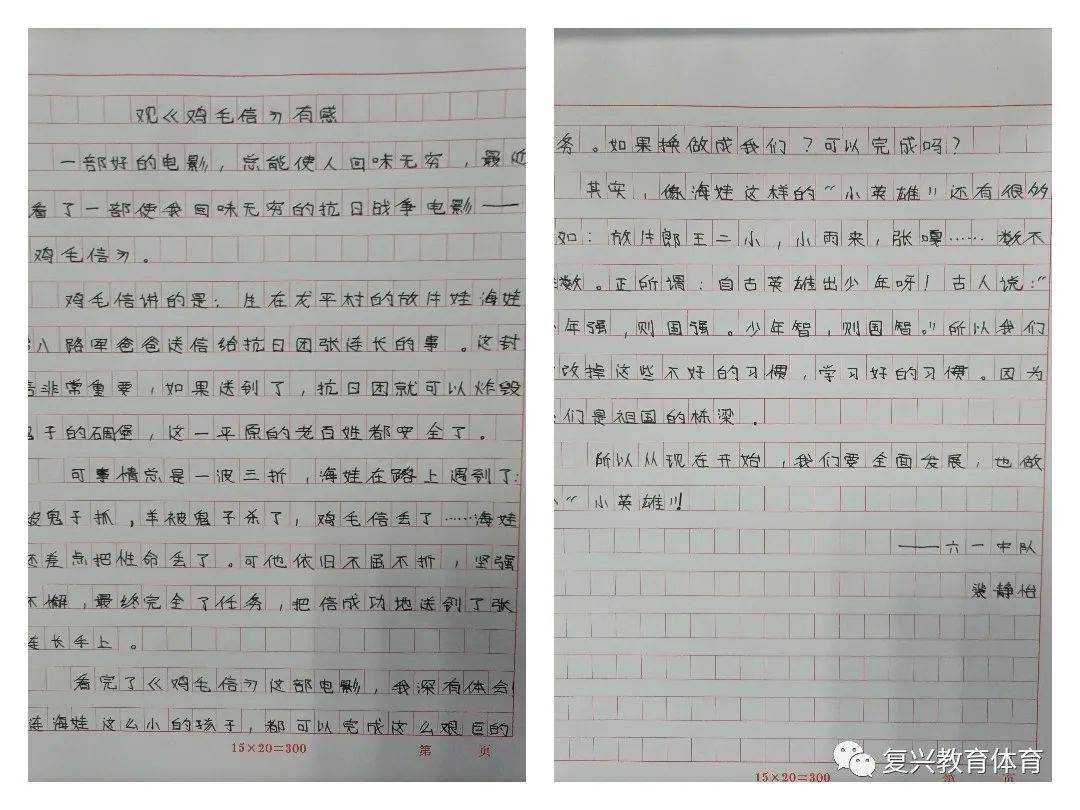 观《鸡毛信》有感
一部好的电影，总能使人回味无穷，最近
看了一部使我回味无穷的抗日战争电影——
鸡毛信》。
鸡毛信讲的是：生在龙平村的放牛娃海娃
八路军爸爸送信给抗日团张连长的事。这封
信非常重要，如果送到了，抗日团就可以炸毁
鬼子的碉堡，这一平原的老百姓都安全了。
可事情总是一波三折，海娃在路上遇到了：
被鬼子抓，羊被鬼子杀了，鸡毛信丢了……海娃
还差点把性命丢了。可他依旧不屈不折，坚强
不懈，最终完全了任务，把信成功地送到了张
连长手上。
看完了《鸡毛信》这部电影，我深有体会
连海娃这么小的孩子，都可以完成这么艰巨的
15×20=300 第 页
务。如果换做成我们？可以完成吗？
其实，像海娃这样的“小英雄”还有很多
如：放牛郎王二小，小雨来，张嘎……数不
数。正所谓：自古英雄出少年呀！古人说：“
少年强，则国强。少年智，则国智。”所以我们
改掉这些不好的习惯，学习好的习惯。因为
们是祖国的栋梁．
所以从现在开始，我们要全面发展，也做
“小英雄”！
——六一中队
裴静怡
15×20=300 第 页
复兴教育体育